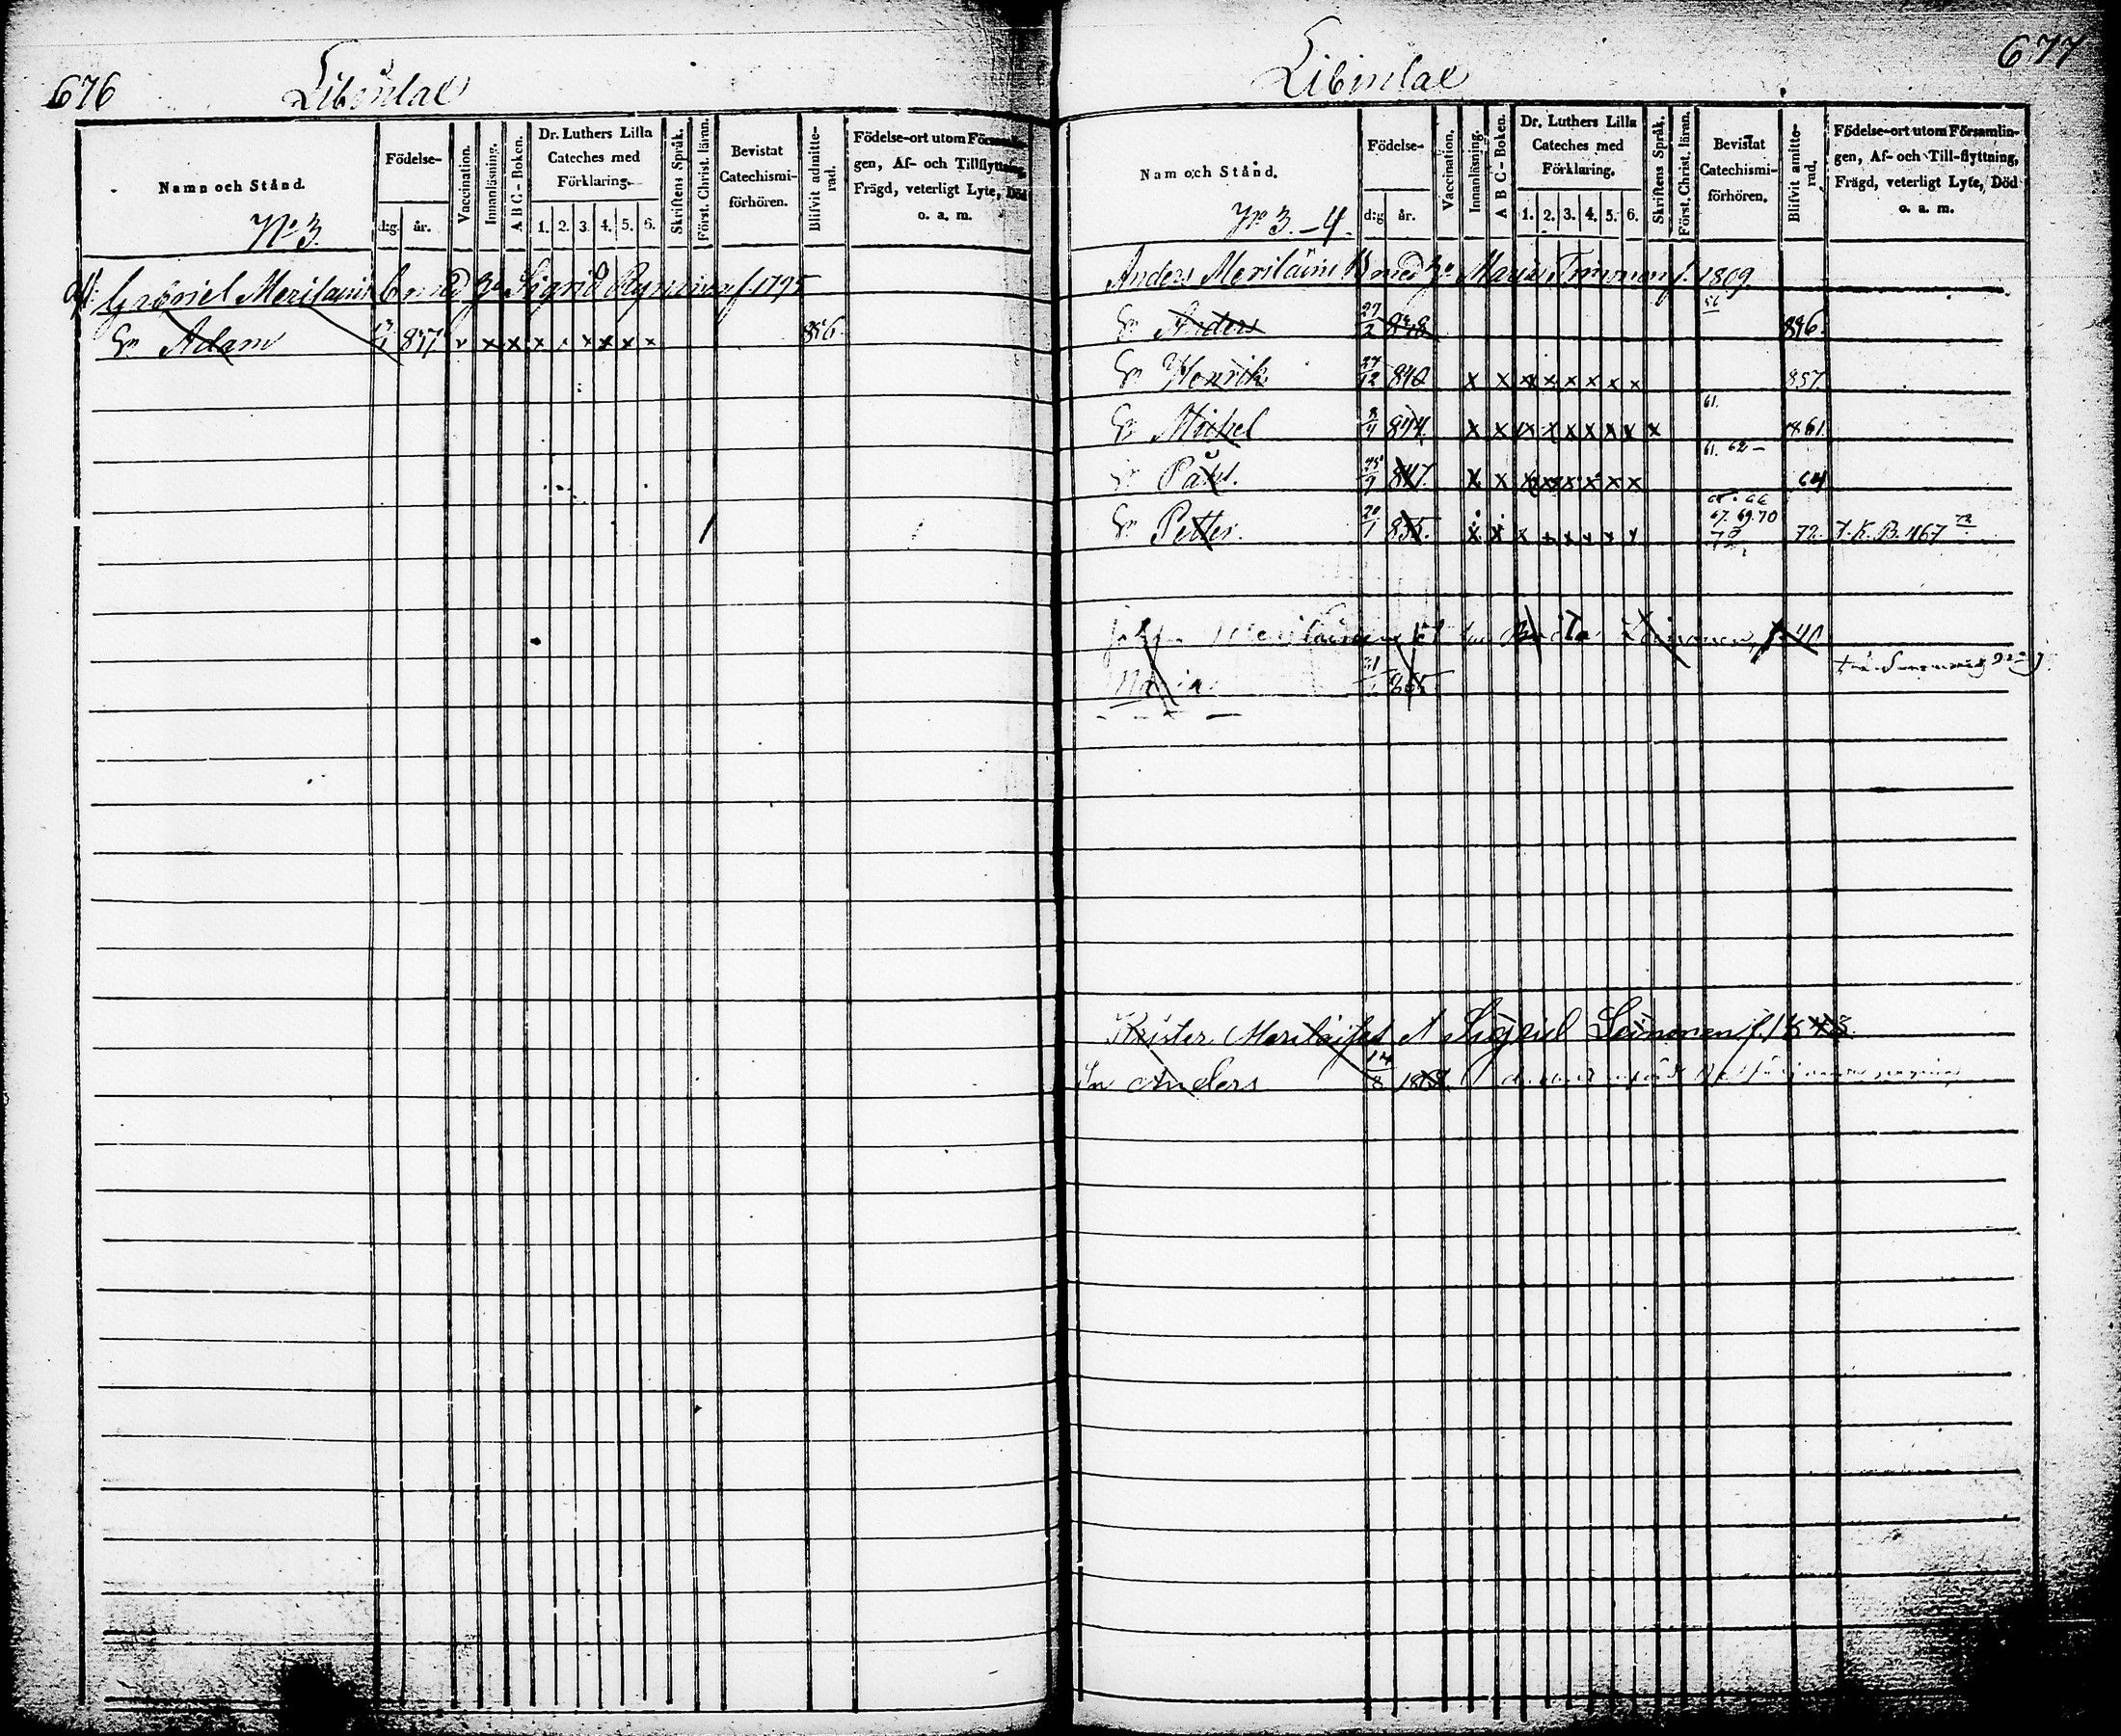 676
Libulax
Namn och Stånd.
Nº 3.
Födelse-
d:g år.
Vaccination.
Innanläsning.
A B C - Boken.
Dr. Luthers Lilla
Cateches med
Förklaring.
1. 2. 3. 4. 5. 6.
Skriftens Språk.
Först. Christ. läran.
Bevistat
Catechismi-
förhören.
Blifvit admitte-
rad.
Födelse-ort utom Församlin-
gen, Af- och Tillflyttning,
Frägd, veterligt Lyte, Död
o. a. m.
Gabriel Meriläin med Sigrid Ryninen f. 1795
Sn Adam 837 x x x x x x x x 856.
677
Libulax
Nam och Stånd.
Nº 3.-4.
Födelse-
d:g år.
Vaccination.
Innanläsning.
A B C - Boken.
Dr. Luthers Lilla
Cateches med
Förklaring.
1. 2. 3. 4. 5. 6.
Skriftens Språk.
Först. Christ. läran.
Bevistat
Catechismi-
förhören.
Blifvit amitte-
rad.
Födelse-ort utom Församlin-
gen, Af- och Till-flyttning,
Frägd, veterligt Lyte, Död
o. a. m.
Anders Meriläin med Maria Timonen f. 1809
Sn Anders 27/2 838 56 856.
Sn Henrik 27/12 840 x x x x x x x x 857
Sn Michel 8/4 844 x x x x x x x x x 61. 861
Sn Påhl. 25/9 847. x x x x x x x x 61. 62- 64
Sn Petter. 20/1 855. x x x x x x x x 67. 69. 70 72. K. B. 467
Meriläinen Brita Leinonen, f. 40
Maria 865
Krister Meriläinen Sigrid Leinonen f. 1848
Sn Anders 14/8 186